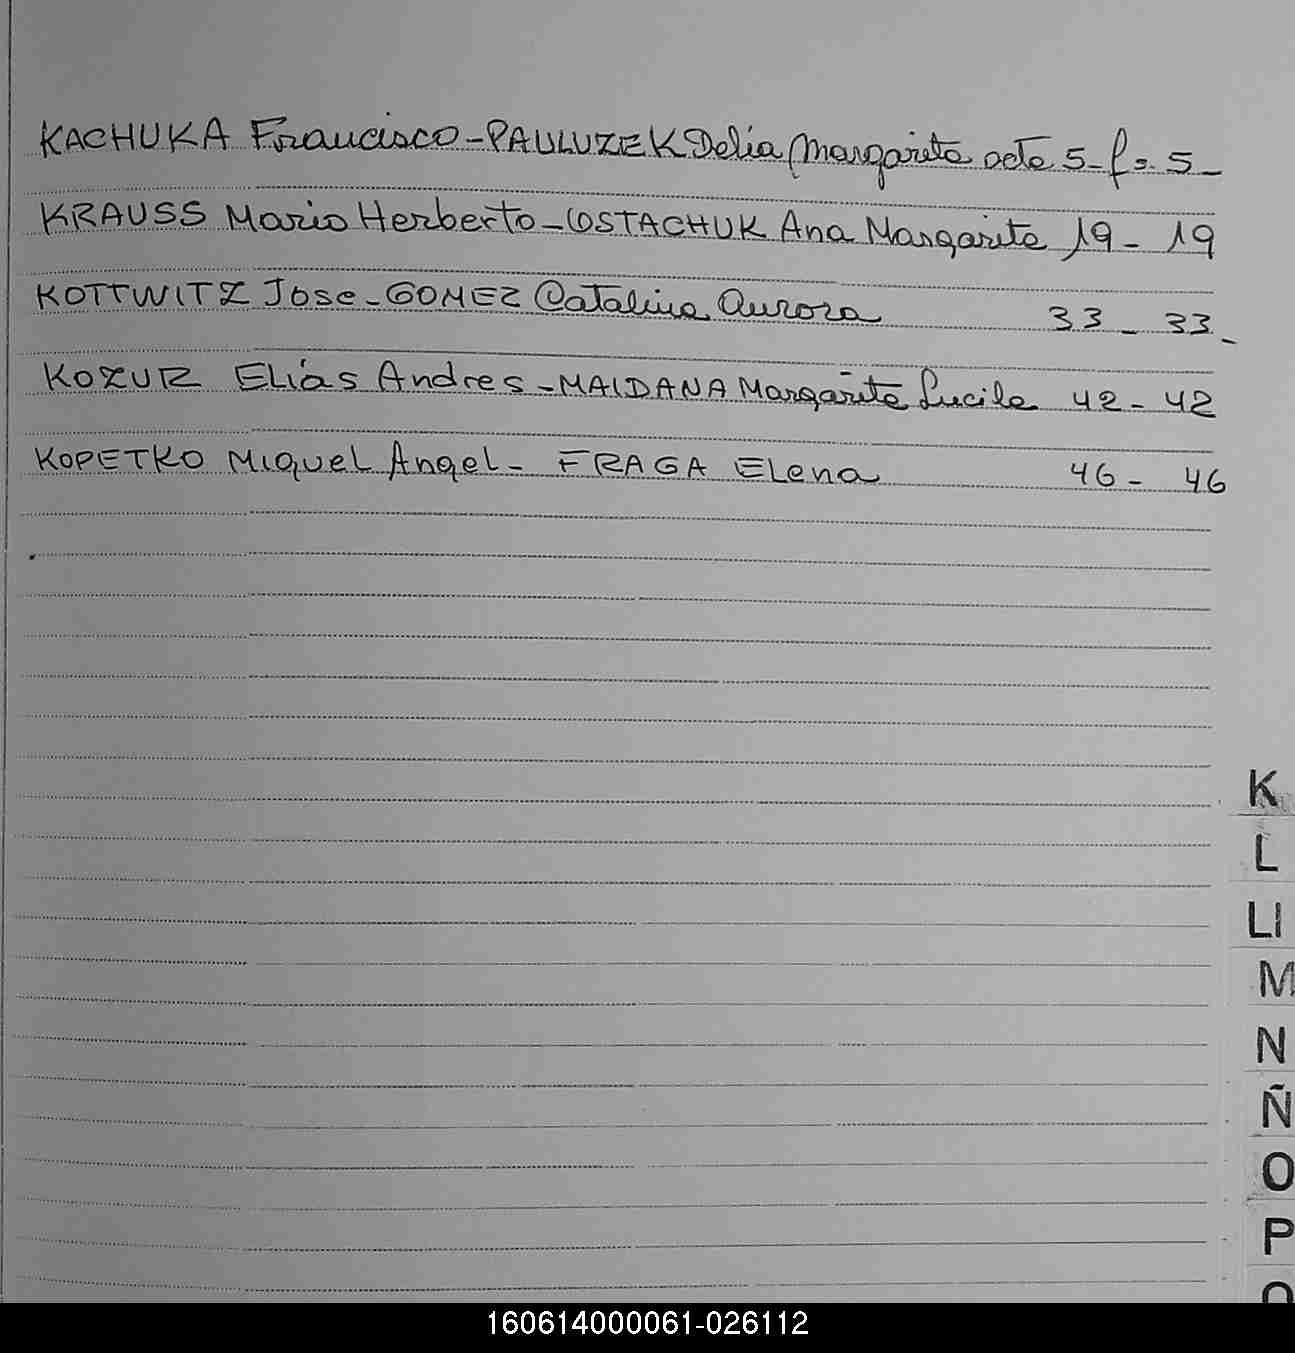 KACHUKA Francisco - PAULUZEK Delia Margarita acta 5 - fs. 5 -
KRAUSS Mario Herberto - COSTACHUK Ana Margarita 19 - 19
KOTTWITZ Jose - GOMEZ Catalina Aurora 33 - 33 -
KOZUR ELías Andres - MALDANA Margarita Lucila 42 - 42
KOPETKO MIguel Angel - FRAGA Elena 46 - 46
K
L
Ll
M
N
Ñ
O
P
160614000061-026112